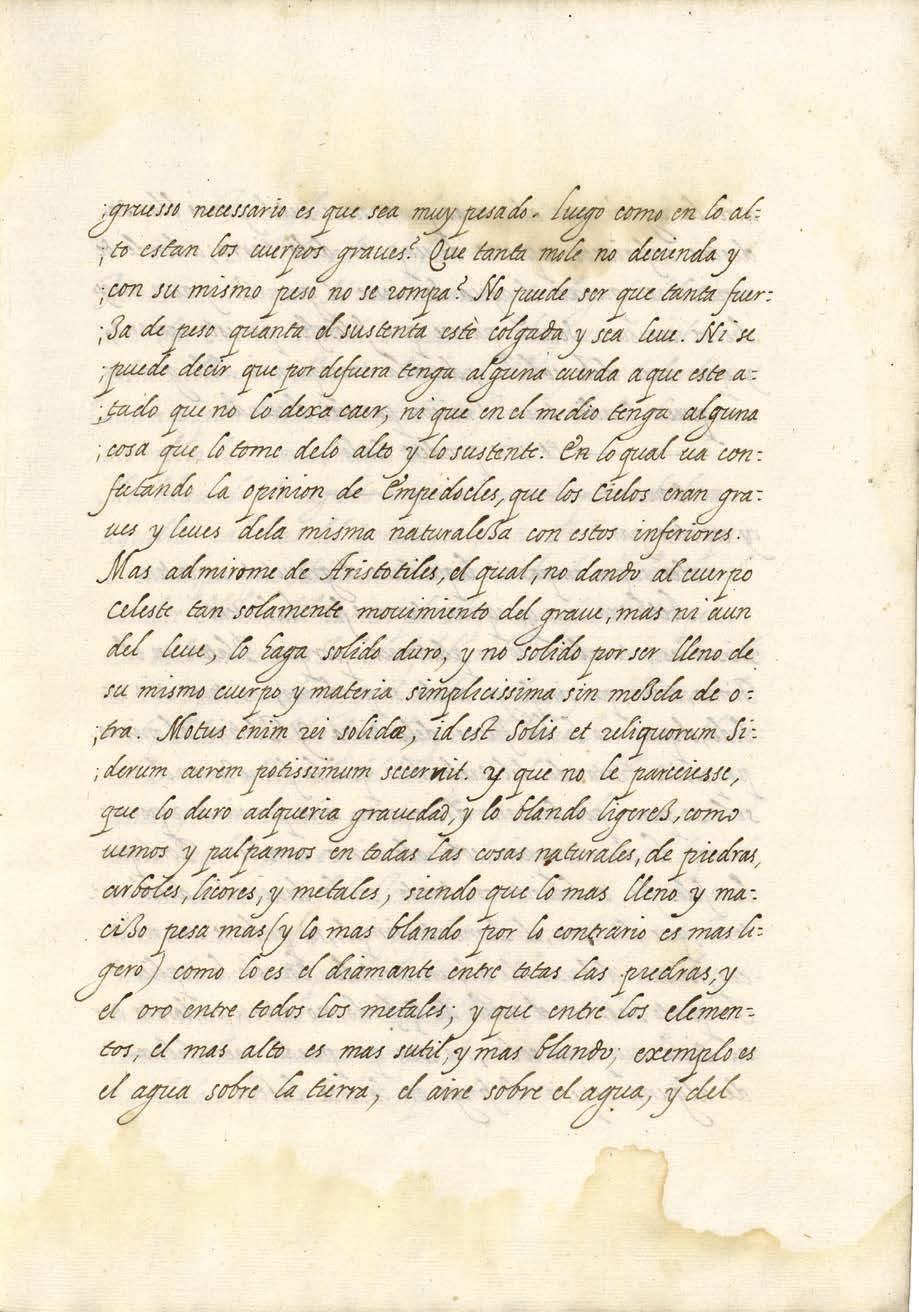 ;gruesso necessario es que sea muy pesado. luego como en lo al=
;to estan los cuerpos graves? Que tanta mole no decienda y
;con su mismo peso no se rompa? No puede ser que tanta fuer=
;za de peso quanta el sustenta esté colgada y sea leve. Ni se
;puede decir que por defuera tenga alguna cuerda a que este a=
;tado que no lo dexa caer, ni que en el medio tenga alguna
;cosa que lo tome delo alto y lo sustente. En lo qual va con=
futando la opinion de Empedocles, que los Cielos eran gra=
ves y leves dela misma naturaleza con estos inferiores.
Mas admirome de Aristotiles, el qual, no dando al cuerpo
Celeste tan solamente movimiento del grave, mas ni aun
del leve, lo haga solido duro, y no solido por ser lleno de
su mismo cuerpo y materia simplicissima sin mezcla de o=
;tra. Motus enim rei solidæ, id est Solis et reliquorum Si=
;derum aerem potissimum secernit. y que no le pareciesse,
que lo duro adqueria gravedad, y lo blando ligerez, como
vemos y palpamos en todas las cosas naturales, de piedras,
arboles, licores, y metales, siendo que lo mas lleno y ma=
cizo pesa mas (y lo mas blando por lo contrario es mas li=
gero) como lo es el diamante entre totas las piedras, y
el oro entre todos los metales; y que entre los elemen=
tos, el mas alto es mas sutil, y mas blando; exemplo es
el agua sobre la tierra, el aire sobre el agua, y del